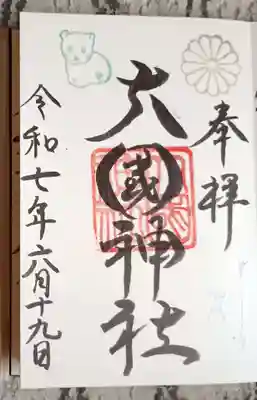 奉拝
大國神社
令和七年六月十九日